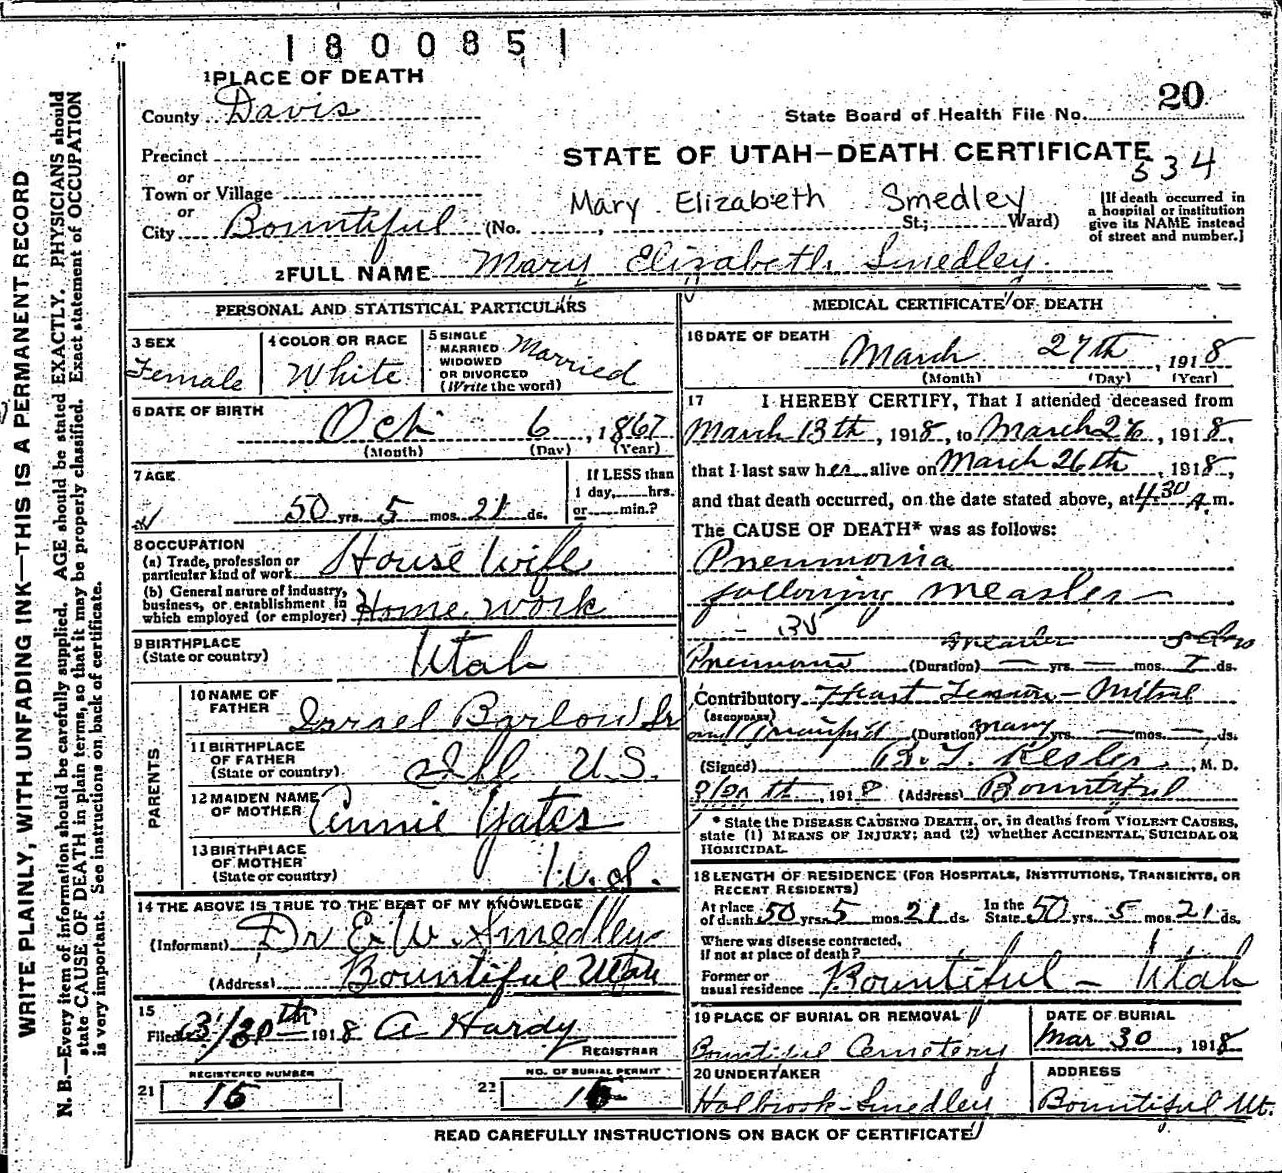 1800851
1 PLACE OF DEATH
County Davis
20
State Board of Health File No.
Precinct
or
STATE OF UTAH—DEATH CERTIFICATE
534
Town or Village
or
Mary Elizabeth Smedley
City Bountiful (No. , St.; Ward)
[If death occurred in
a hospital or institution
give its NAME instead
of street and number.]
2 FULL NAME Mary Elizabeth Smedley.
PERSONAL AND STATISTICAL PARTICULARS
3 SEX
Female
4 COLOR OR RACE
White
5 SINGLE
MARRIED
WIDOWED
OR DIVORCED
(Write the word)
Married
6 DATE OF BIRTH
Oct 6, 1867
(Month) (Day) (Year)
7 AGE
50 yrs. 5 mos. 21 ds.
If LESS than
1 day, hrs.
or min.?
8 OCCUPATION
(a) Trade, profession or
particular kind of work House Wife
(b) General nature of industry,
business, or establishment in
which employed (or employer) Home work
9 BIRTHPLACE
(State or country) Utah
PARENTS
10 NAME OF
FATHER Israel Barlow Sr
11 BIRTHPLACE
OF FATHER
(State or country) Ill U.S.
12 MAIDEN NAME
OF MOTHER Annie Yates
13 BIRTHPLACE
OF MOTHER
(State or country)
14 THE ABOVE IS TRUE TO THE BEST OF MY KNOWLEDGE
(Informant) Dr E.W. Smedley
(Address) Bountiful Utah
15
Filed 3/30th 1918 A Hardy
REGISTRAR
21 REGISTERED NUMBER
15
22 NO. OF BURIAL PERMIT
15
MEDICAL CERTIFICATE OF DEATH
16 DATE OF DEATH
March 27th, 1918
(Month) (Day) (Year)
17 I HEREBY CERTIFY, That I attended deceased from
March 13th, 1918, to March 26, 1918,
that I last saw her alive on March 26th, 1918,
and that death occurred, on the date stated above, at 4:30 A.m.
The CAUSE OF DEATH* was as follows:
Pneumonia
following measles
Pneumonia (Duration) — yrs. — mos. 7 ds.
Contributory Heart Lesion - Mitral
(SECONDARY)
and (Duration) many yrs. — mos. — ds.
(Signed) B. T. Kesler, M. D.
1918 (Address) Bountiful
* State the DISEASE CAUSING DEATH, or, in deaths from VIOLENT CAUSES,
state (1) MEANS OF INJURY; and (2) whether ACCIDENTAL, SUICIDAL OR
HOMICIDAL.
18 LENGTH OF RESIDENCE (FOR HOSPITALS, INSTITUTIONS, TRANSIENTS, OR
RECENT RESIDENTS)
At place
of death 50 yrs. 5 mos. 21 ds.
In the
State 50 yrs. 5 mos. 21 ds.
Where was disease contracted,
if not at place of death?
Former or
usual residence Bountiful - Utah
19 PLACE OF BURIAL OR REMOVAL
Bountiful Cemetery
DATE OF BURIAL
Mar 30, 1918
20 UNDERTAKER
Holbrook-Smedley
ADDRESS
Bountiful Ut.
READ CAREFULLY INSTRUCTIONS ON BACK OF CERTIFICATE
WRITE PLAINLY, WITH UNFADING INK—THIS IS A PERMANENT RECORD
N. B.—Every item of information should be carefully supplied. AGE should be stated EXACTLY. PHYSICIANS should
state CAUSE OF DEATH in plain terms, so that it may be properly classified. Exact statement of OCCUPATION
is very important. See instructions on back of certificate.